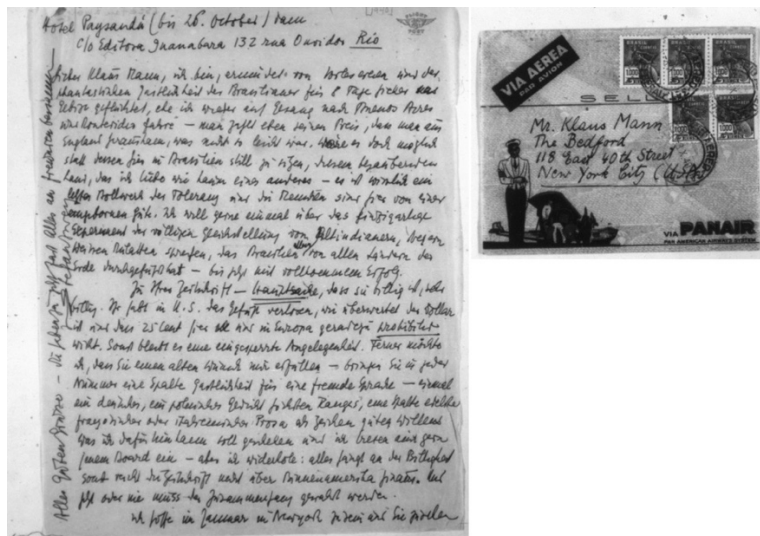 Hôtel Paysandú (bis 26. October) dann
c/o Editora Guanabara 132 rua Ouvidor Rio
Lieber Klaus Mann, ich bin, ermüdet von Vorlesereien und der
phantastischen Gastlichkeit der Brasilianer für 8 Tage hieher ins
Gebirge geflüchtet, ehe ich wieder auf Gesang nach Buenos Aires
und Montevideo fahre – man zahlt eben seinen Preis, dass man aus
England herauskam, was nicht so leicht war. Wäre es doch möglich
statt dessen hier in Brasilien still zu sitzen, diesem bezaubernden
Land, das ich liebe wie kaum eines anderes – es ist wirklich ein
Bollwerk der Toleranz und die Menschen sind hier von einer
angebornen Güte. Ich will gerne einmal über das einzigartige
Experiment der völligen Gleichstellung von Altindianern, Negern
Weissen Mulatten sprechen, das Brasilien von allen Ländern der
Erde durchgeführt hat – bis jetzt mit vollkommenem Erfolg.
Zu Ihrer Zeitschrift – Hauptsache, dass sie billig ist, sehr
billig. Ihr habt in U.S. das Gefühl verloren, wie überwertet der Dollar
ist und dass 25 cent hier und in Europa geradezu prohibitiv
wirkt. Sonst bleibt es eine eingesperrte Angelegenheit. Ferner möchte
ich, dass Sie einen alten Wunsch mir erfüllen – bringen Sie in jeder
Nummer eine Spalte Gastlichkeit für eine fremde Sprache – einmal
ein deutsches, ein polnisches Gedicht höchsten Ranges, eine Spalte
französischer oder italienischer Prosa als Zeichen guten Willens
Was ich dafür tun kann soll geschehen und ich trete auch gern
jenem Board ein – aber ich wiederhole: alles hängt an der Billigkeit
sonst reicht die Zeitschrift nicht über Binnenamerika hinaus. Und
jetzt oder nie muss der Zusammenhang gewahrt werden.
Ich hoffe im Januar in New York zu sein und Sie
Alles Guten Grüsse – Sie haben ja jetzt fast alles an Freunden beisammen
Stefan Zweig
VIA AEREA
PAR AVION
BRASIL
BRASIL
BRASIL
1000
1000
1000
Mr. Klaus Mann
The Bedford
118 East 40th Street
New York City (USA)
VIA PANAIR
PAN AMERICAN AIRWAYS SYSTEM